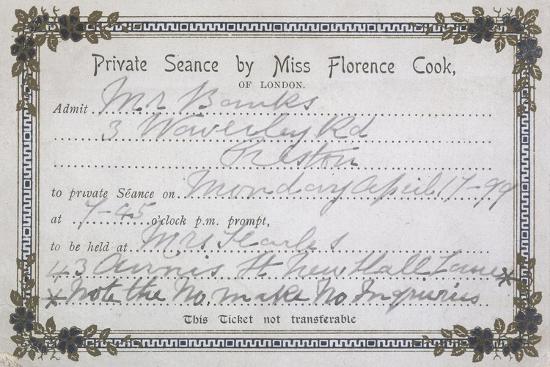 Private Seance by Miss Florence Cook,
OF LONDON.
Admit Mr Banks
3 Waverley Rd
Preston
to private Séance on Monday April 17-99
at 7-45 o'clock p.m. prompt,
to be held at Mrs
43 St New Hall Lane *
* Note the No. make No Inquiries
This Ticket not transferable